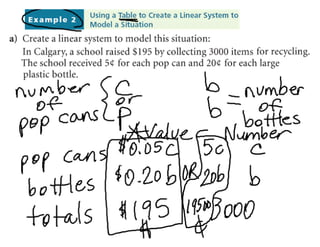 Example 2
Using a Table to Create a Linear System to
Model a Situation
a) Create a linear system to model this situation:
In Calgary, a school raised $195 by collecting 3000 items for recycling.
The school received 5¢ for each pop can and 20¢ for each large
plastic bottle.
number of pop cans { c or p
b b = number of bottles
Value Number
pop cans $0.05c OR 5c c
bottles $0.20b 20b b
totals $195 19500 3000
$ ¢